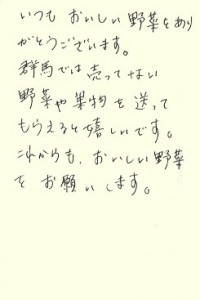 いつもおいしい野菜をあり
がとうございます。
群馬では売ってない
野菜や果物を送って
もらえると嬉しいです。
これからも、おいしい野菜
をお願いします。